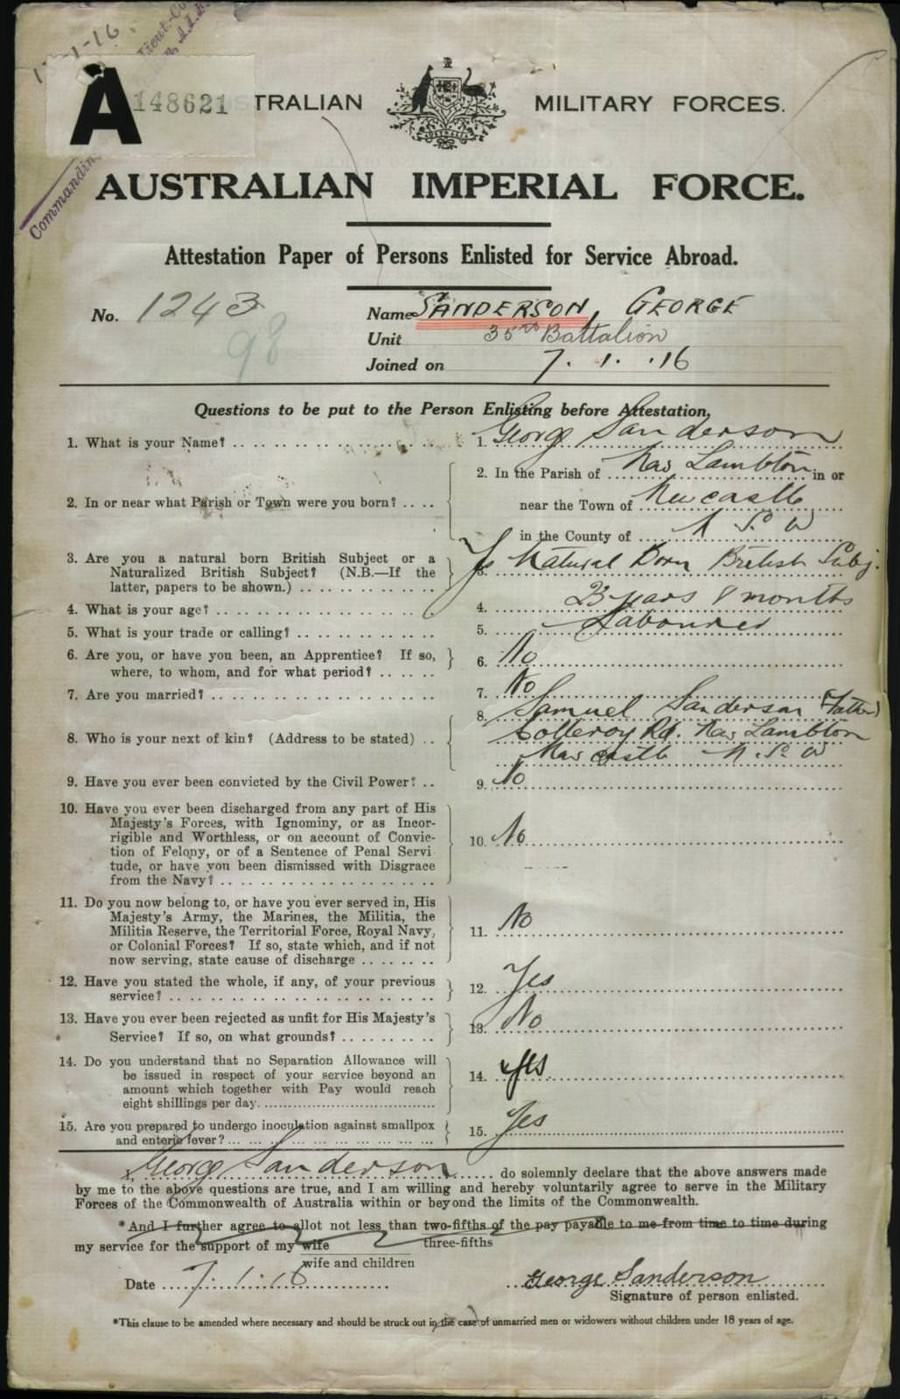 1-16
Lieut-Co
A148621 TRALIAN MILITARY FORCES.
Commandin
AUSTRALIA
AUSTRALIAN IMPERIAL FORCE.
Attestation Paper of Persons Enlisted for Service Abroad.
No. 1243 Name SANDERSON, GEORGE
98
Unit 35th Battalion
Joined on 7. 1. 16
Questions to be put to the Person Enlisting before Attestation,
1. What is your Name? 1. George Sanderson
2. In or near what Parish or Town were you born? 2. In the Parish of New Lambton in or
near the Town of Newcastle
in the County of N S W
3. Are you a natural born British Subject or a
Naturalized British Subject? (N.B.—If the
latter, papers to be shown.) 3. Yes Natural Born British Subj.
4. What is your age? 4. 23 years 8 months
5. What is your trade or calling? 5. Labourer
6. Are you, or have you been, an Apprentice? If so,
where, to whom, and for what period? 6. No
7. Are you married? 7. No
8. Who is your next of kin? (Address to be stated) 8. Samuel Sanderson (Father)
Rd. New Lambton
Newcastle N.S.W
9. Have you ever been convicted by the Civil Power? 9. No
10. Have you ever been discharged from any part of His
Majesty's Forces, with Ignominy, or as Incor-
rigible and Worthless, or on account of Convic-
tion of Felony, or of a Sentence of Penal Servi
tude, or have you been dismissed with Disgrace
from the Navy? 10. No
11. Do you now belong to, or have you ever served in, His
Majesty's Army, the Marines, the Militia, the
Militia Reserve, the Territorial Force, Royal Navy,
or Colonial Forces? If so, state which, and if not
now serving, state cause of discharge 11. No
12. Have you stated the whole, if any, of your previous
service? 12. Yes
13. Have you ever been rejected as unfit for His Majesty's
Service? If so, on what grounds? 13. No
14. Do you understand that no Separation Allowance will
be issued in respect of your service beyond an
amount which together with Pay would reach
eight shillings per day. 14. Yes
15. Are you prepared to undergo inoculation against smallpox
and enteric fever? 15. Yes
George Sanderson do solemnly declare that the above answers made
by me to the above questions are true, and I am willing and hereby voluntarily agree to serve in the Military
Forces of the Commonwealth of Australia within or beyond the limits of the Commonwealth.
*And I further agree to allot not less than two-fifths of the pay payable to me from time to time during
three-fifths
my service for the support of my wife
wife and children
Date 7.1.16 George Sanderson
Signature of person enlisted.
*This clause to be amended where necessary and should be struck out in the case of unmarried men or widowers without children under 18 years of age.